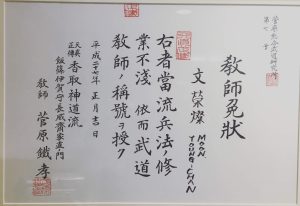 教師免狀
文榮燦 MOON YOUNG-CHAN
右者當流兵法ノ修
業不淺依而武道
教師ノ稱號ヲ授ク
平成二十七年正月吉日
天真正傳
香取神道流
飯篠伊賀守長威齋家直門
教師 菅原鐵孝